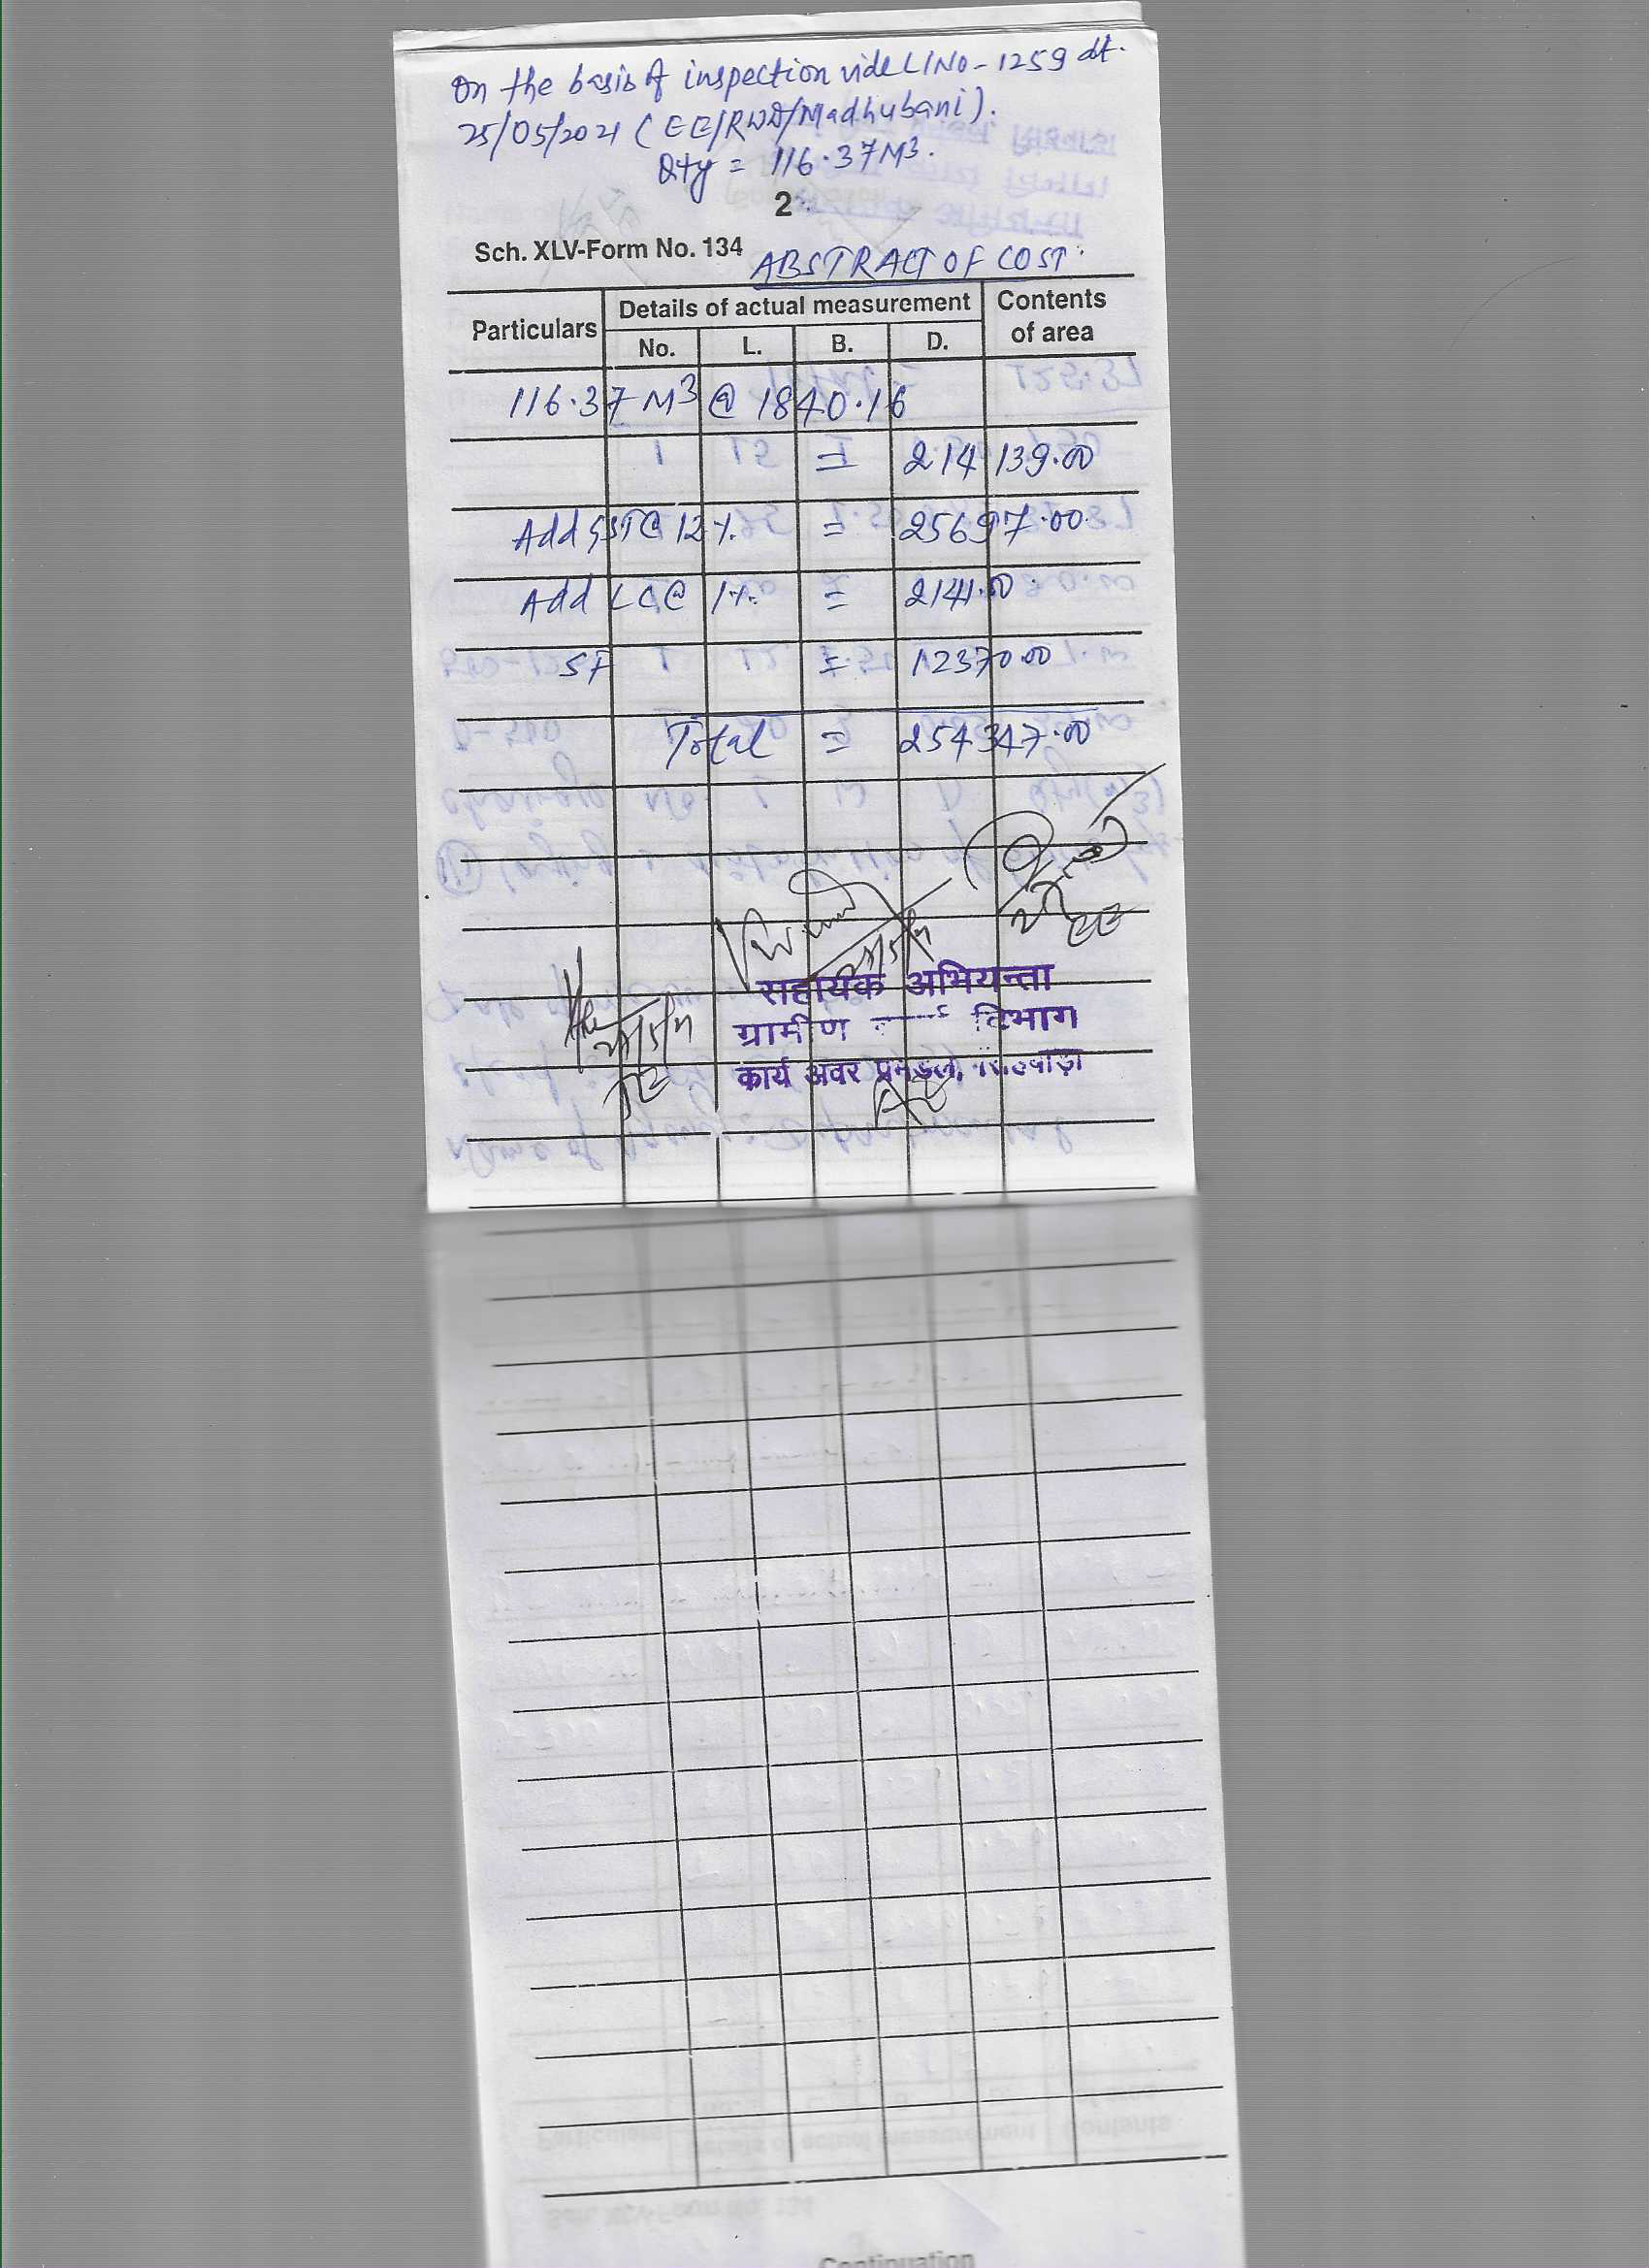 On the basis of inspection vide L/No- 1259 dt.
25/05/2021 (EE/RWD/Madhubani).
Qty = 116.37M3.
2
Sch. XLV-Form No. 134
ABSTRACT OF COST.
Particulars Details of actual measurement Contents of area
No. L. B. D.
116.37 M3 @ 1840.16
= 214139.00
Add GST@ 12%. = 25697.00
Add LC@ 1%. = 2141.00
SF = 12370.00
Total = 254347.00
EE
सहायक अभियन्ता
ग्रामीण विभाग
कार्य अवर प्रमंडल,
JE
AE
Continuation